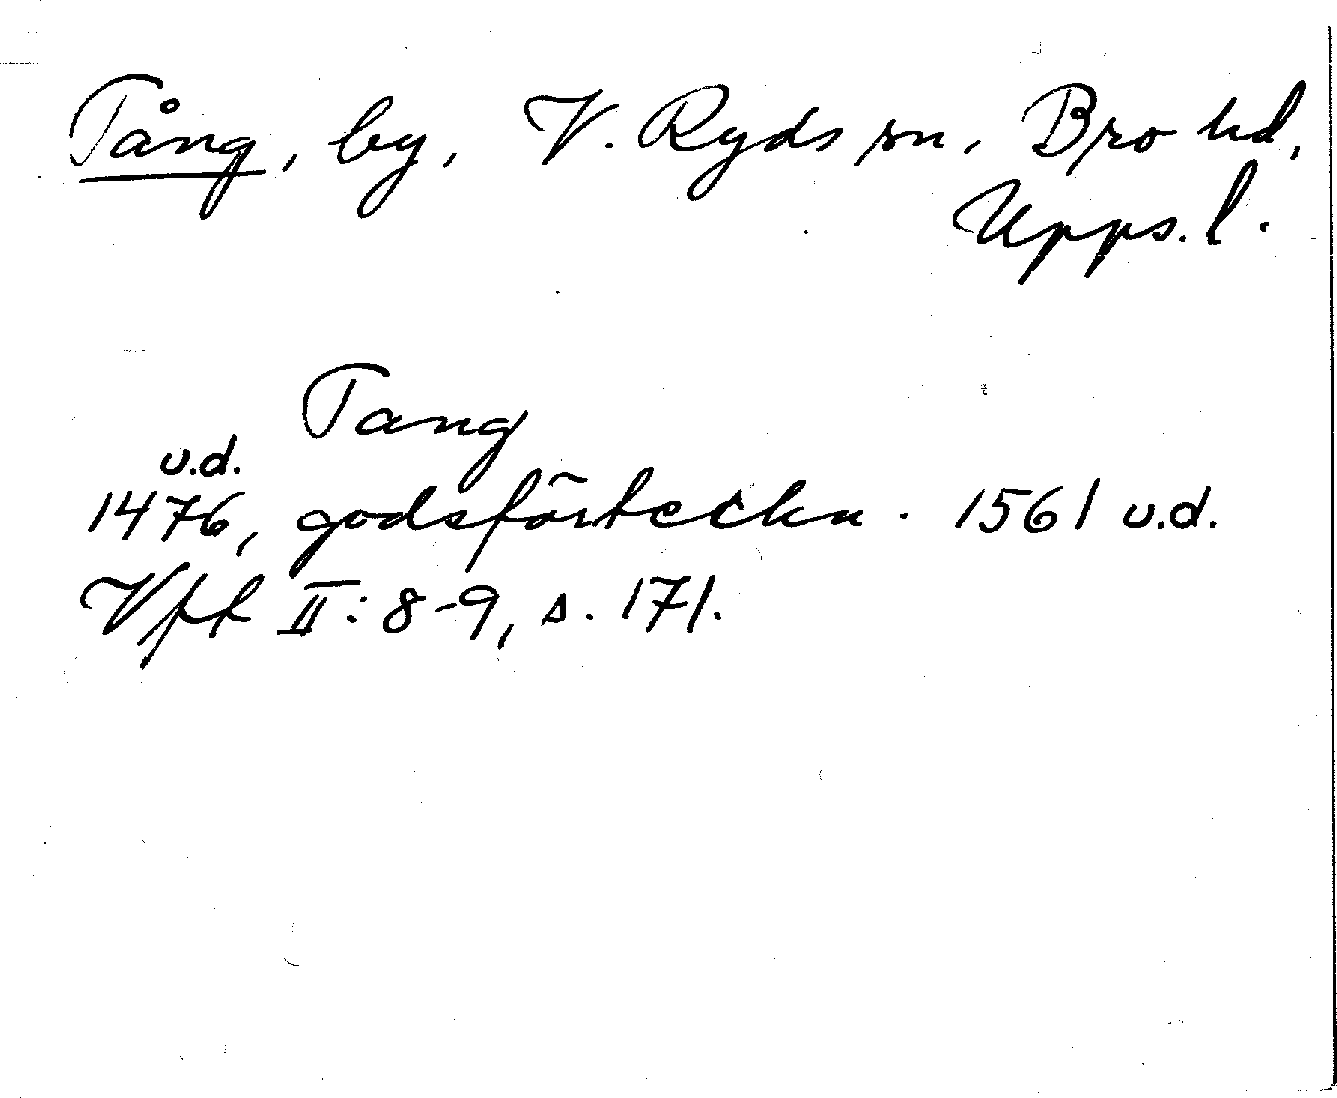 Tång, by, V. Ryds sn, Bro hd,
Upps. l.
Tang
u.d.
1476, godsförteckn. 1561 u.d.
Vfl II: 8-9, s. 171.